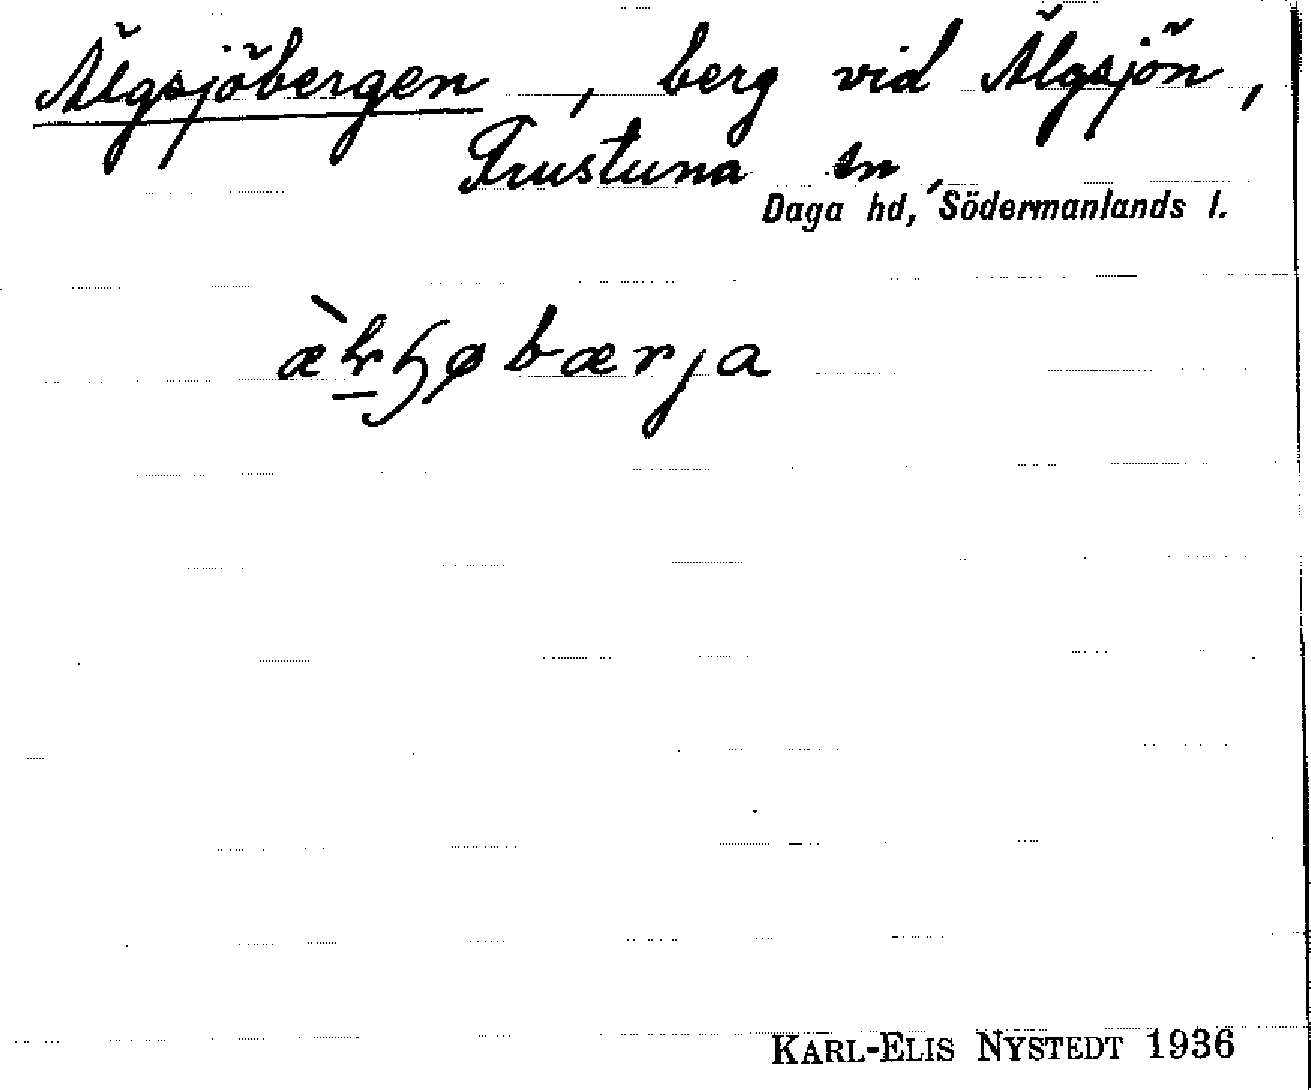 Älgsjöbergen, berg vid Älgsjön,
Frustuna sn,
Daga hd, Södermanlands l.
KARL-ELIS NYSTEDT 1936